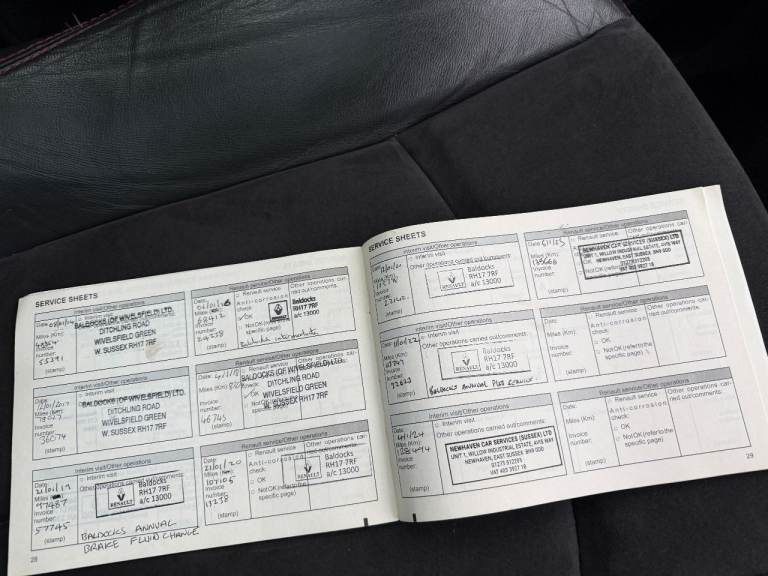 SERVICE SHEETS
Interim visit/Other operations
Date:
○ Interim visit
Miles (Km)
Invoice
number:
55291
(stamp)
BALDOCKS (OF WIVELSFIELD) LTD.
DITCHLING ROAD
WIVELSFIELD GREEN
W. SUSSEX RH17 7RF
Renault service/Other operations
Date:
○ Renault service
Other operations carried out/comments:
Miles (Km)
68412
Anti-corrosion
check:
OK
Invoice
number:
○ Not OK (refer to the
specific page)
(stamp)
RENAULT
Baldocks
RH17 7RF
a/c 13000
Interim visit/Other operations
Date:
○ Interim visit
Miles
Invoice
number:
36074
(stamp)
BALDOCKS (OF WIVELSFIELD) LTD.
DITCHLING ROAD
WIVELSFIELD GREEN
W. SUSSEX RH17 7RF
Renault service/Other operations
Date:
Miles (Km)
Invoice
number:
46745
(stamp)
BALDOCKS (OF WIVELSFIELD) LTD.
DITCHLING ROAD
WIVELSFIELD GREEN
W. SUSSEX RH17 7RF
Interim visit/Other operations
Date:
21/01/19
○ Interim visit
Miles
97487
Other operations carried out/comments:
Invoice
number:
57745
(stamp)
RENAULT
Baldocks
RH17 7RF
a/c 13000
BALDOCKS ANNUAL
BRAKE FLUID CHANGE
Renault service/Other operations
Date:
21/01/20
○ Renault service
Other operations carried out/comments:
Miles (Km)
107105
Anti-corrosion
check:
○ OK
Invoice
number:
13238
○ Not OK (refer to the
specific page)
(stamp)
RENAULT
Baldocks
RH17 7RF
a/c 13000
28
SERVICE SHEETS
Interim visit/Other operations
○ Interim visit
Other operations carried out/comments:
Miles (Km)
Invoice
number:
(stamp)
RENAULT
Baldocks
RH17 7RF
a/c 13000
Renault service/Other operations
Date:
○ Renault service
Other operations carried out/comments:
Miles (Km)
Invoice
number:
○ Not OK (refer to the
specific page)
(stamp)
NEWHAVEN CAR SERVICES (SUSSEX) LTD
UNIT 1, WILLOW INDUSTRIAL ESTATE, AVIS WAY
NEWHAVEN, EAST SUSSEX BN9 0DD
01273 512255
VAT 405 9927 18
Interim visit/Other operations
○ Interim visit
Other operations carried out/comments:
Miles (Km)
Invoice
number:
(stamp)
RENAULT
Baldocks
RH17 7RF
a/c 13000
BALDOCKS ANNUAL PLUS SERVICE
Renault service/Other operations
Date:
○ Renault service
Other operations carried out/comments:
Miles (Km)
Anti-corrosion
check:
○ OK
Invoice
number:
○ Not OK (refer to the
specific page)
(stamp)
Interim visit/Other operations
Date:
4/1/24
○ Interim visit
Miles (Km)
128494
Other operations carried out/comments:
Invoice
number:
(stamp)
NEWHAVEN CAR SERVICES (SUSSEX) LTD
UNIT 1, WILLOW INDUSTRIAL ESTATE, AVIS WAY
NEWHAVEN, EAST SUSSEX BN9 0DD
01273 512255
VAT 405 9927 18
Renault service/Other operations
Date:
○ Renault service
Other operations carried out/comments:
Miles (Km)
Anti-corrosion
check:
○ OK
Invoice
number:
○ Not OK (refer to the
specific page)
(stamp)
29